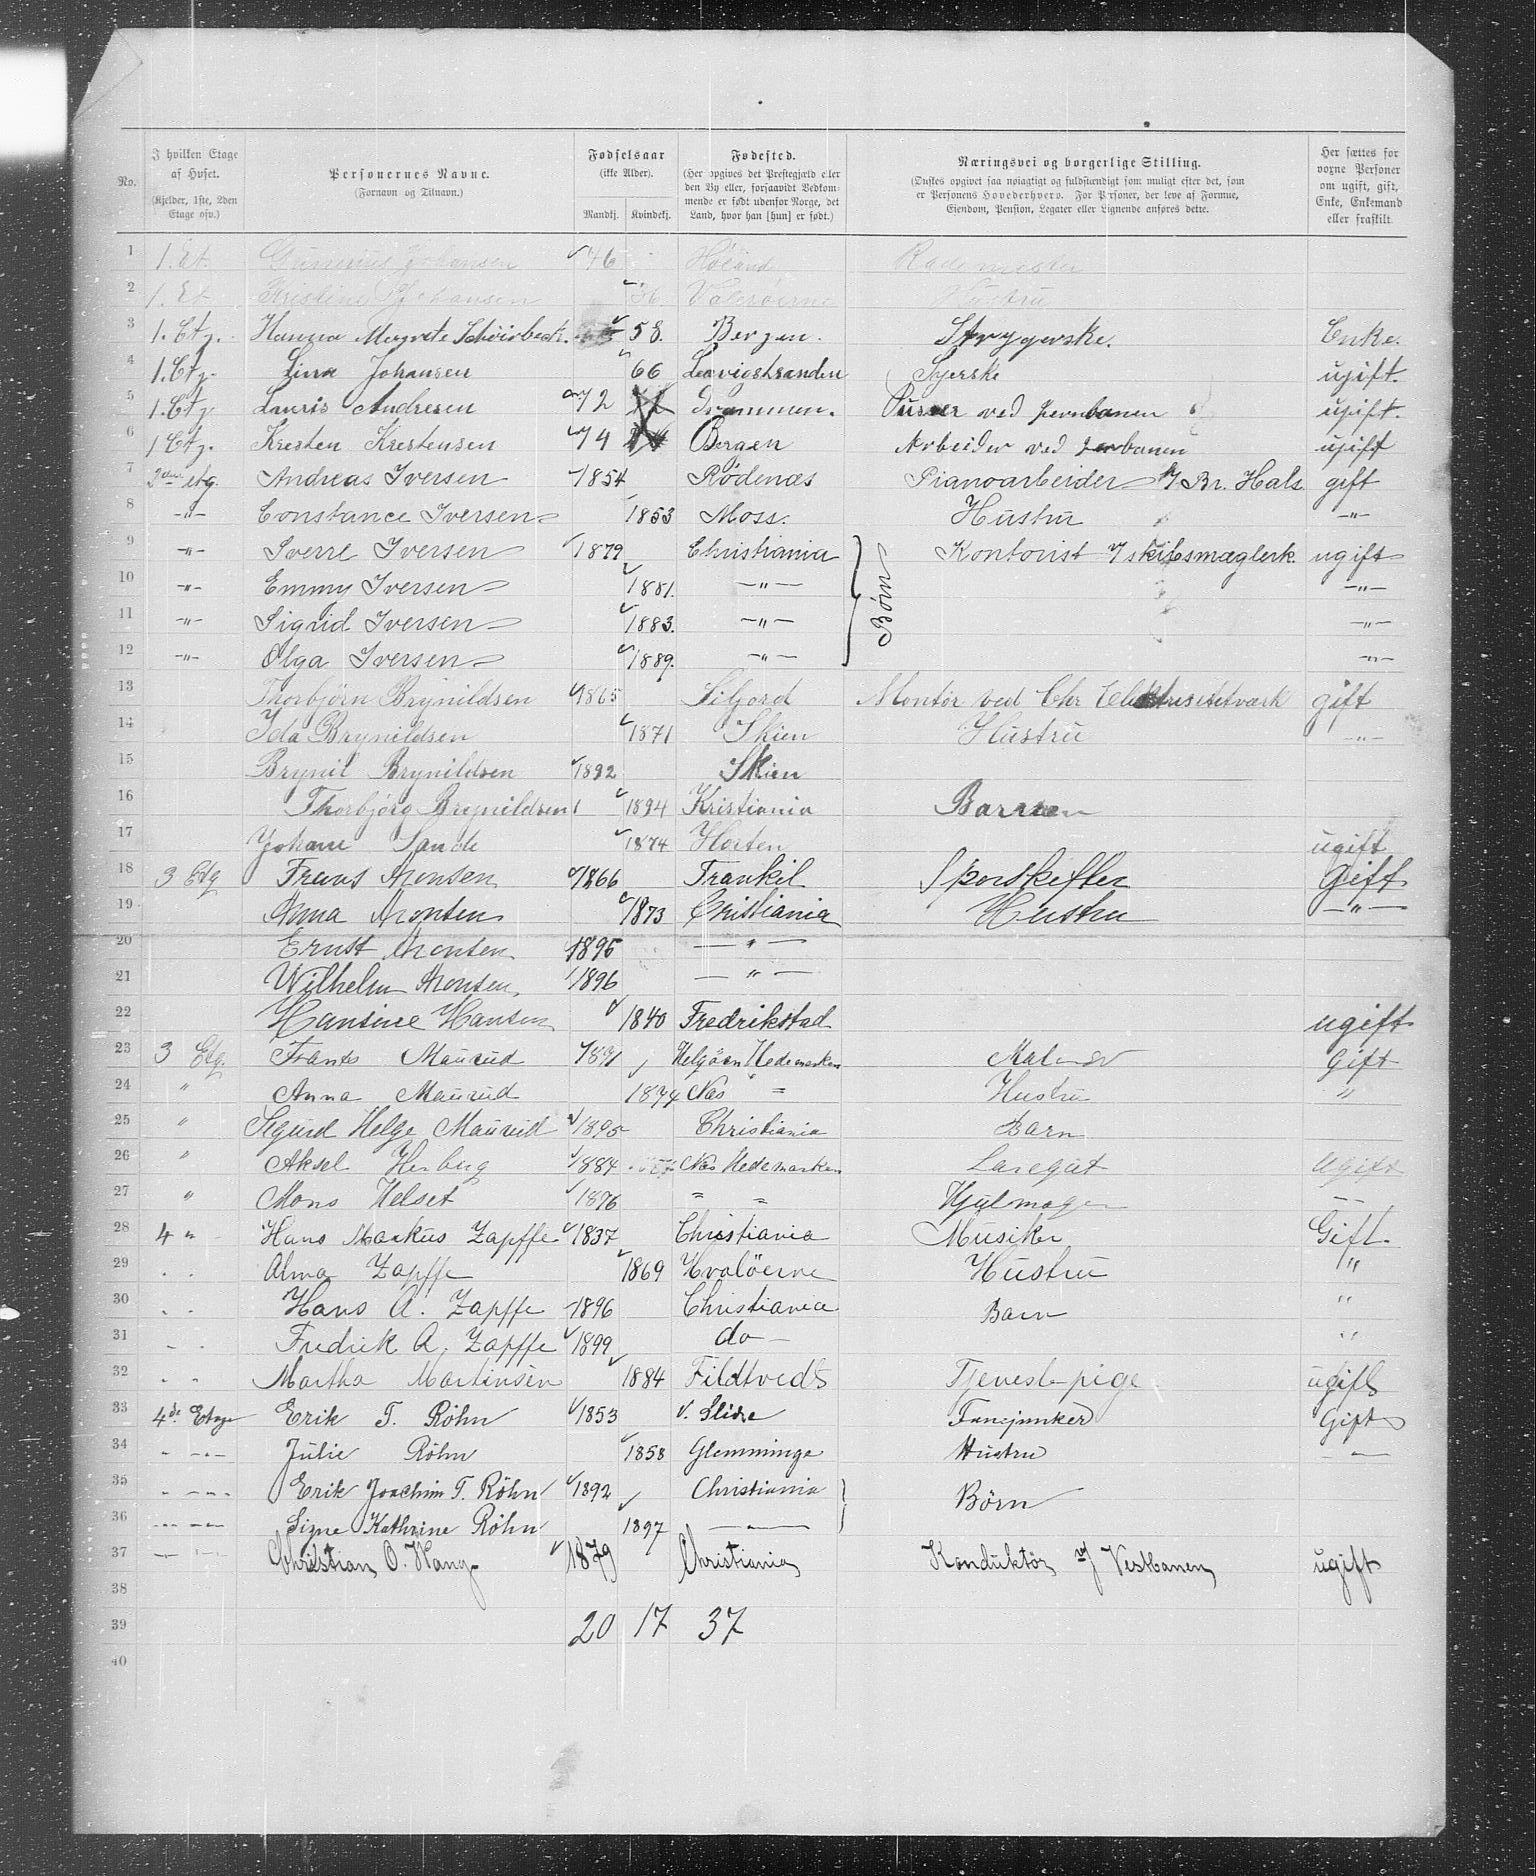 No.
I hvilken Etage af Huset.
(Kjelder, 1ste, 2den Etage osv.)
Personernes Navne.
(Fornavn og Tilnavn.)
Fødselsaar
(ikke Alder).
Mandkj. Kvindekj.
Fødested.
(Her opgives det Prestegjæld eller den By eller, forsaavidt Vedkommende er født udenfor Norge, det Land, hvor han [hun] er født.)
Næringsvei og borgerlige Stilling.
(Ønskes opgivet saa nøiagtigt og fuldstændigt som muligt efter det, som er Personens Hovederhverv. For Personer, der leve af Formue, Eiendom, Pension, Legater eller Lignende anføres dette.
Her sættes for voxne Personer om ugift, gift, Enke, Enkemand eller fraskilt.
1 1. Et. Gunerius Johansen 46 Høland Rodemester
2 1. Et Kristine Johansen 36 Hustru
3 1. Etg. Hanna Margrete 58. Bergen. Strygerske. Enke.
4 1. Etg. Lina Johansen 66 Syerske ugift.
5 1. Etg Lauris Andresen 72 Drammen. Pusser ved jernbanen ugift.
6 1 Etg. Kresten Krestensen 74 Bergen Arbeider ved jernbanen ugift
7 2den etg. Andreas Iversen 1854 Rødenæs Pianoarbeider h/ Br. Hals gift
8 -"- Constance Iversen 1853 Moss. Hustru -"-
9 -"- Sverre Iversen 1879 Christiania Kontorist v/ skibsmæglerk. ugift
10 -"- Emmy Iversen 1881. -"- Børn -"-
11 -"- Sigrid Iversen 1883. -"- -"-
12 -"- Olga Iversen 1889. -"- -"-
13 Thorbjörn Brynildsen 1865 Siljord Montør ved Chr Elektrisitetværk gift
14 Ida Brynildsen 1871 Skien Hustru -"-
15 Brynil Brynildsen 1892 Skien
16 Thorbjörg Brynildsen 1894 Kristiania Barn
17 Johane Sande 1874 Horten ugift
18 3 Etg Frans Monsen 1866 Frankil Sporskifter Gift
19 Anna Monsen 1873 Christiania Hustru -"-
20 Ernst Monsen 1895 -"-
21 Wilhelm Monsen 1896 -"-
22 Hansine Hansen 1840 Fredrikstad ugift
23 3 Etg. Frants Maurud 1891 Helgöen Hedemarken Maler Gift
24 " Anna Maurud 1874 Næs = Hustru "
25 " Sigurd Helge Maurud 1895 Christiania Barn
26 " Aksel Herberg 1884 Næs Hedemarken Laregut Ugift
27 " Mons Helset 1876 = = Hjulmager --
28 4 " Hans Markus Zapffe 1837 Christiania Musiker Gift.
29 Alma Zapffe 1869 Hvalöerne Hustru "
30 Hans A. Zapffe 1896 Christiania Barn "
31 Fredrik A. Zapffe 1899 do "
32 Martha Martinsen 1884 Fildtvedt Tjenestepige ugift
33 4de Etage Erik T. Röhn 1853 V. Slidre Fanejunker Gift
34 - -"- Julie Röhn 1858 Glemminge Hustru -"-
35 - -"- Erik Joachim T. Röhn 1892 Christiania Börn
36 -"- -"- Signe Kathrine Röhn 1897 -"-
37 - -"- Christian O. Wang 1879 Christiania Konduktör v/ Vestbanen ugift
38
39 20 17 37
40